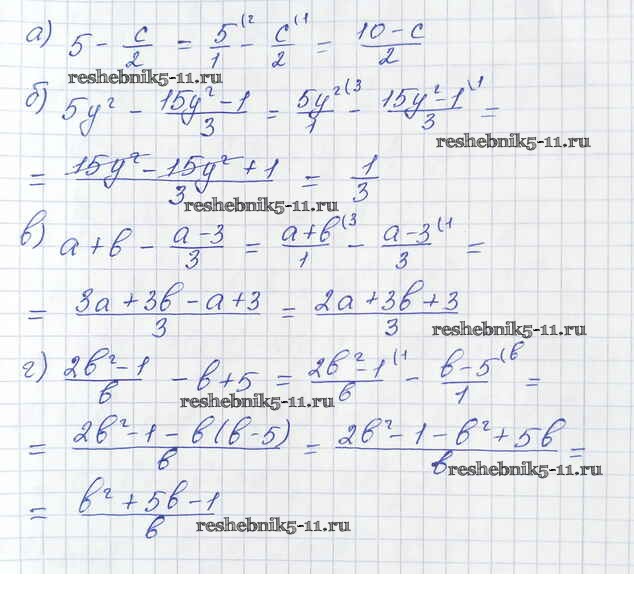 а) 5 - c/2 = 5/1 (2 - c/2 (1 = (10-c)/2
reshebnik5-11.ru
б) 5y² - (15y²-1)/3 = 5y²/1 (3 - (15y²-1)/3 (1 =
reshebnik5-11.ru
= (15y² - 15y² + 1)/3 = 1/3
reshebnik5-11.ru
в) a + b - (a-3)/3 = (a+b)/1 (3 - (a-3)/3 (1 =
= (3a + 3b - a + 3)/3 = (2a + 3b + 3)/3
reshebnik5-11.ru
г) (2b²-1)/b - b + 5 = (2b²-1)/b (1 - (b-5)/1 (b =
reshebnik5-11.ru
= (2b² - 1 - b(b-5))/b = (2b² - 1 - b² + 5b)/b =
reshebnik5-11.ru
= (b² + 5b - 1)/b
reshebnik5-11.ru